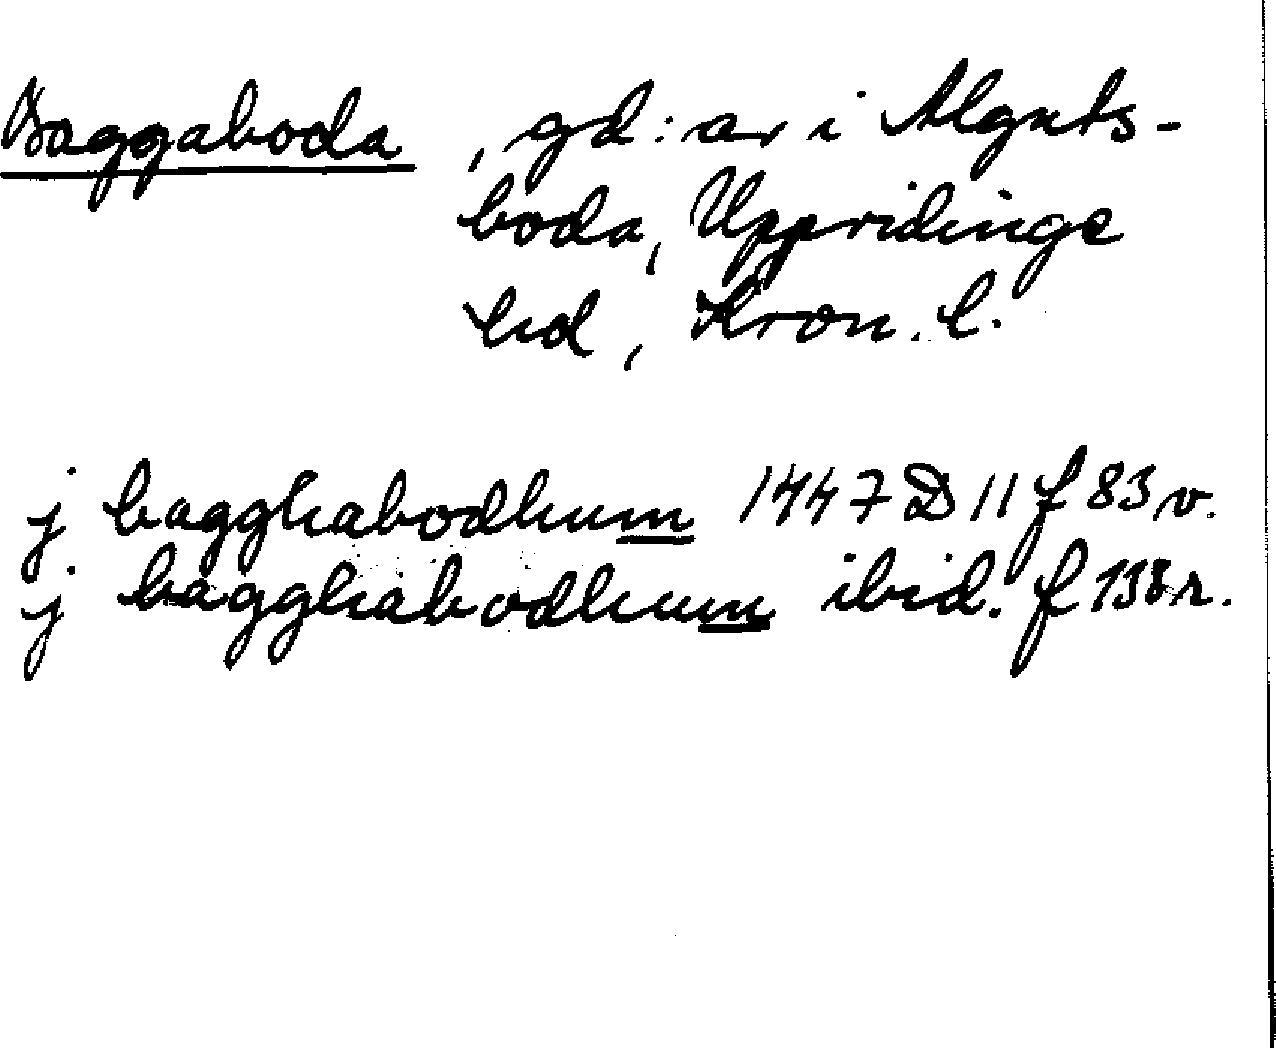 Baggaboda, gd:ar i Alguts-
boda, Uppvidinge
hd, Kron. l.
j bagghabodhum 1447 D 11 f 83 v.
j bagghabodhum ibid. f 138 r.